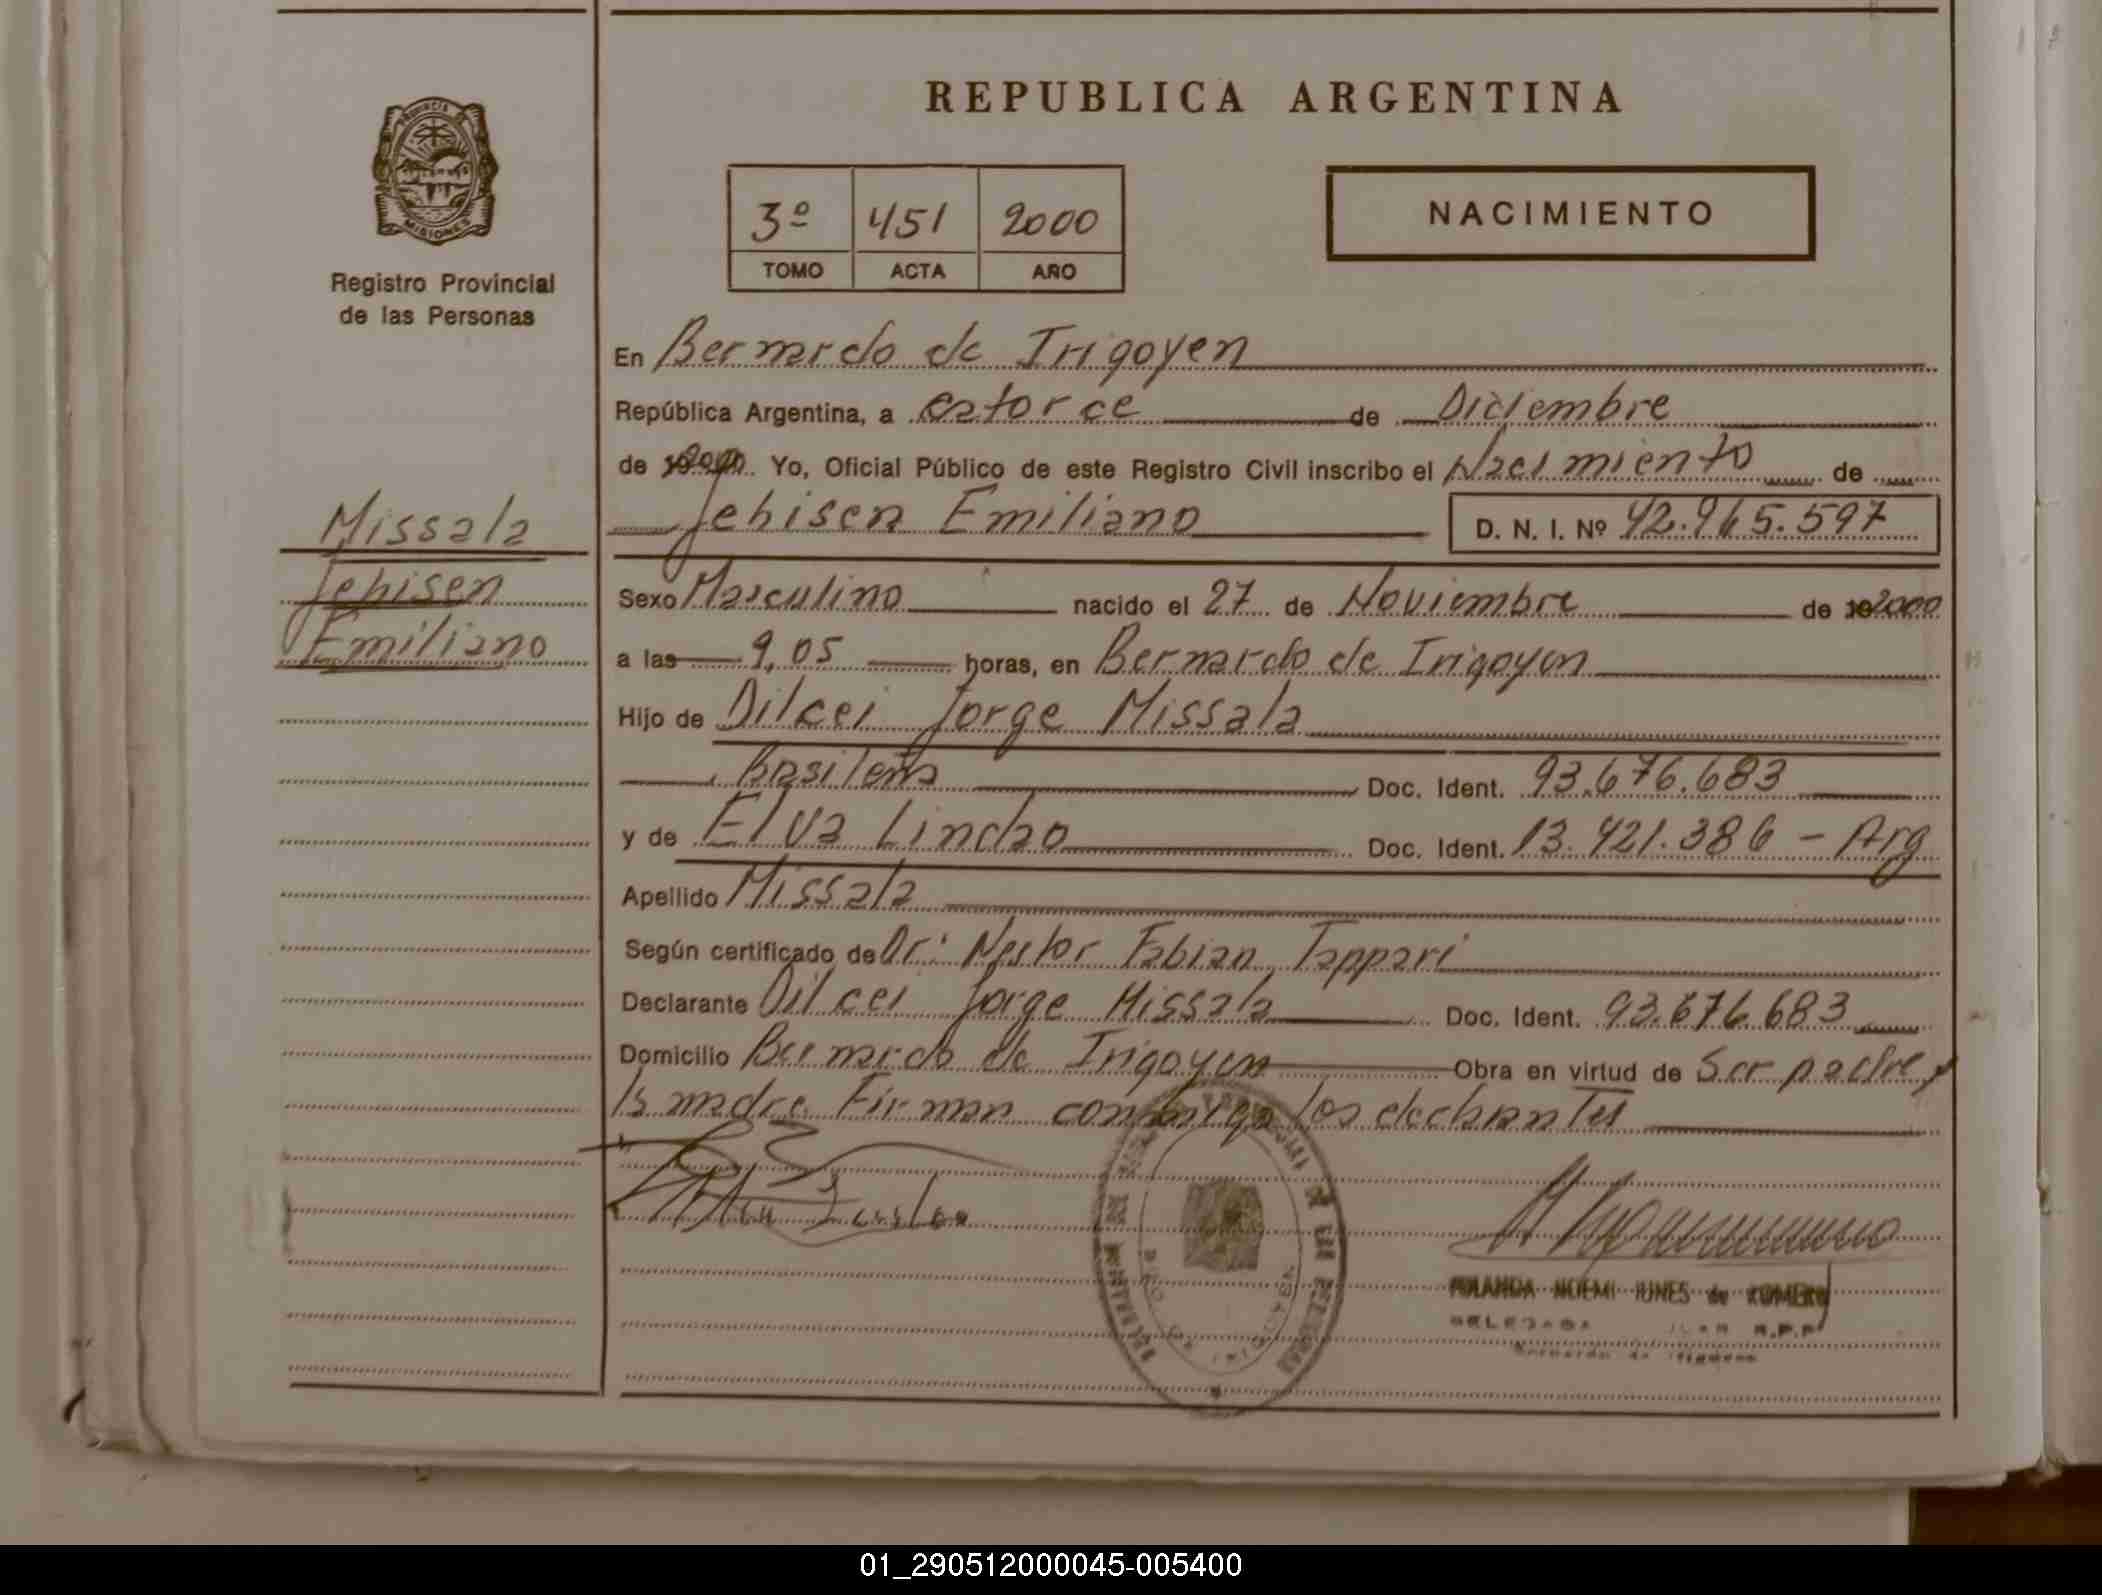 REPUBLICA ARGENTINA
PROVINCIA DE
MISIONES
Registro Provincial
de las Personas
3º 451 2000
TOMO ACTA AÑO
NACIMIENTO
En Bernardo de Irigoyen
República Argentina, a catorce de Diciembre
de 2000. Yo, Oficial Público de este Registro Civil inscribo el Nacimiento de
Jehisen Emiliano D. N. I. Nº 42.965.597
Missala
Jehisen
Emiliano
Sexo Masculino nacido el 27 de Noviembre de 2000
a las 9,05 horas, en Bernardo de Irigoyen
Hijo de Dilcei Jorge Missala
Basileña Doc. Ident. 93.676.683
y de Elva Lindao Doc. Ident. 13.421.386 - Arg
Apellido Missala
Según certificado de Dr: Nestor Fabian Tappari
Declarante Dilcei Jorge Missala Doc. Ident. 93.676.683
Domicilio Bernardo de Irigoyen Obra en virtud de Ser padre y
la madre. Firman conmigo los declarantes
NOEMI de ROMERO
R.P.P
Bernardo de Irigoyen
01_290512000045-005400